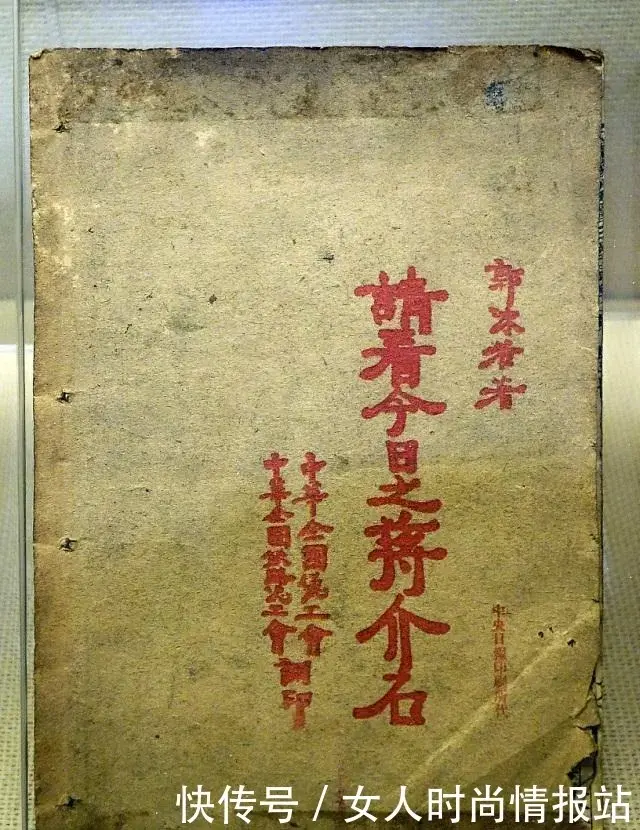 郭沫若著
中央日報印刷所代
請看今日之蔣介石
中華全國總工會
中華全國鉄路總工會
翻印
快传号/女人时尚情报站